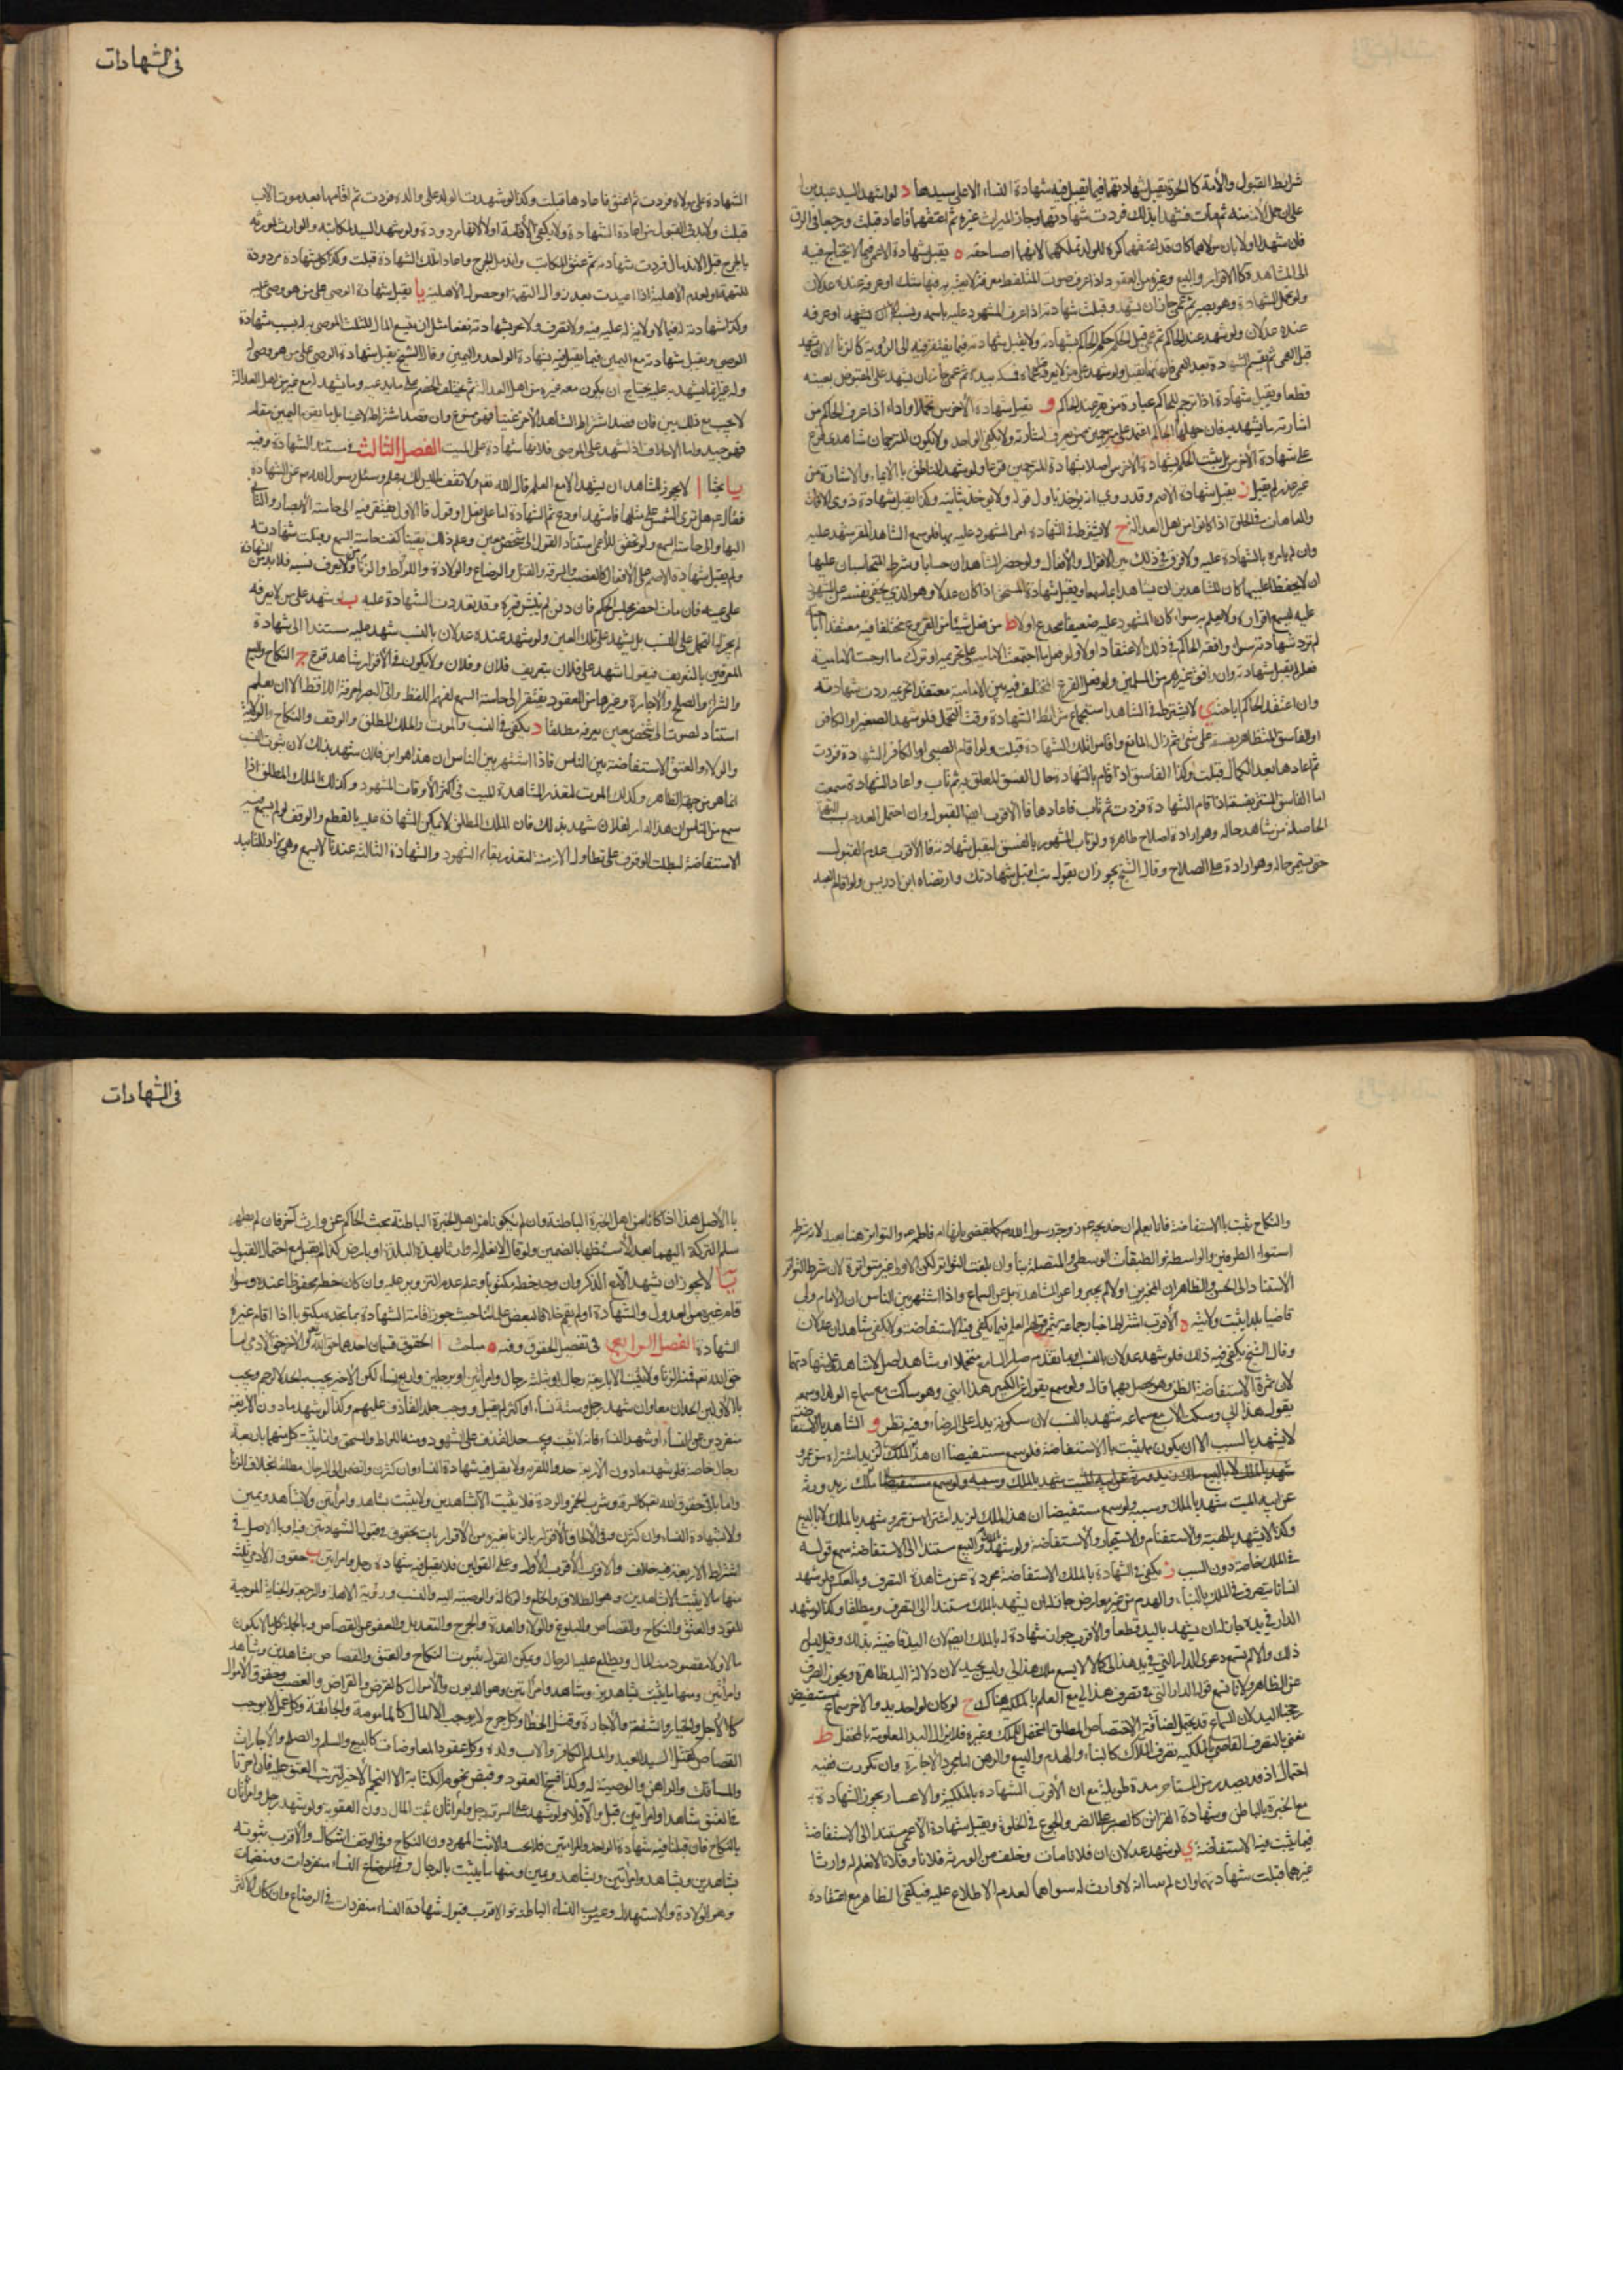 شرايط القبول والأمة كالحرة يقبل شهادتها فيما يقبل فيه شهادة النساء الا على سيدها د لو اشهد السيد عبدين
على ان حمل الأمة منه ثم مات فشهدا بذلك فردت شهادتهما وحاز الميراث غيره ثم اعتقهما فاعادا قبلت ورجعا في الرق
فان شهدا اولا بان مولاهما كان قد اعتقهما كره للولد تملكهما لانهما احيا حقه ه يقبل شهادة الاعمى فيما لا يحتاج فيه
الى المشاهدة كالاقرار والبيع وغيره من العقود اذا عرف صوت المتلفظ معرفة لا يعتريه فيها شك او عرفه عنده عدلان
ولو تحمل الشهادة وهو بصير ثم عمى جاز ان يشهد وقبلت شهادته اذا عرف المشهود عليه باسمه ونسبه او عرفه
عنده عدلان ولو شهد عند الحاكم ثم عمى قبل الحكم حكم الحاكم بشهادته ولا يقبل شهادته فيما يفتقر فيه الى الرؤية كالزنا الا ان يشهد
قبل العمى ثم يقيم الشهادة بعد العمى فانها تقبل ولو شهد على من لا يعرفه
قطعا ويقبل شهادته اذا ترجم للحاكم عبارة من حضر عند الحاكم و يقبل شهادة الأخرس تحملا واداء اذا عرف الحاكم من
اشارته ما يشهد به فان جهلها الحاكم اعتمد على مترجمين ممن يعرف اشارته ولا يكفى الواحد ولا يكون المترجمان شاهدى فرع
على شهادة الأخرس بل يثبت الحكم بشهادة الاخرس اصلا بشهادة المترجمين فرعا ولو شهد الناطق بالايماء والاشارة من
غير عذر لم يقبل ز يقبل شهادة الاصم وقد روى انه يؤخذ باول قوله ولا يؤخذ بثانيه وكذا يقبل شهادة ذوى الآفات
والعاهات في الخلق اذا كانوا من اهل العدالة ح لا يشترط في الشهادة امر المشهود عليه بها فلو سمع الشاهد المقر شهد عليه
وان لم يامره بالشهادة عليه ولا فرق في ذلك بين الاقوال والأفعال ولو حضر الشاهدان حسابا وشرط المتحاسبان عليهما
ان لا يحفظا عليهما كان للشاهدين ان يشهدا بما سمعا ويقبل شهادة المستخفى اذا كان عدلا وهو الذى يخفى نفسه عن المشهود
عليه ليسمع اقراره ولا يعلم به سواء كان المشهود عليه ضعيفا ينخدع او لا ط من فعل شيئا من الفروع مختلفا فيه معتقدا اباحته
لم ترد شهادته سواء وافقه الحاكم في ذلك الاعتقاد او لا ولو فعل ما اجتمعت الامامية على تحريمه او ترك ما اوجبت الامامية
فعله لم يقبل شهادته وان وافق غيرهم من المسلمين ولو فعل الفرع المختلف فيه بين الامامية معتقدا تحريمه ردت شهادته
وان اعتقد الحاكم اباحته ى لا يشترط في الشاهد استجماع شرائط الشهادة وقت التحمل فلو شهد الصغير او الكافر
او الفاسق المتظاهر بفسقه على شئ ثم زال المانع واقاموا تلك الشهادة قبلت ولو اقام الصبى او الكافر الشهادة فردت
ثم اعادها بعد الكمال قبلت وكذا الفاسق اذا اقام بالشهادة حال الفسق المعلق به ثم تاب واعاد الشهادة سمعت
اما الفاسق المستتر بفسقه اذا قام الشهادة فردت ثم تاب فاعادها فالاقرب ايضا القبول وان احتمل العدم بسبب التهمة
الحاصلة من شاهد حاله وهو ارادة اصلاح ظاهره ولو تاب المشهور بالفسق ليقبل شهادته فالأقرب عدم القبول
حتى يستمر حاله وهو ارادة على الصلاح وقال الشيخ يجوز ان يقول تب اقبل شهادتك وارتضاه ابن ادريس ولو اقام العبد
في الشهادات
الشهادة على مولاه فردت ثم اعتق فاعادها قبلت وكذا لو شهدت الولد على والده فردت ثم اقامها بعد موت الاب
قبلت ولا بد في القبول من اعادة الشهادة ولا يكفى الأقامة اولا لانها مردودة ولو شهد السيد لمكاتبه والوارث لمورثه
بالجرح قبل الاندمال فردت شهادته ثم عتق المكاتب واندمل الجرح واعاد تلك الشهادة قبلت وكذا كل شهادة مردودة
للتهمة او لعدم الأهلية اذا اعيدت بعد زوال التهمة او حصول الاهلية يا يقبل شهادة الوصى على من هو وصى عليه
وكذا شهادته له فيما لا ولاية له عليه فيه ولا تصرف ولا تجر شهادته نفعا مثل ان يقيم المال للثلث الموصى به له بسبب شهادة
الوصى ويقبل شهادته مع اليمين فيما يقبل فيه شهادة الواحد واليمين وقال الشيخ يقبل شهادة الوصى على من هو وصى له
وله غير انها يشهد به عليه يحتاج ان يكون معه غيره من اهل العدالة ثم يحلف الخصم على ما يدعيه وما يشهد له مع غيره من اهل العدالة
لا يجب مع ذلك يمين فان قصد اشتراط الشاهد الآخر عينا فهو ممنوع وان قصد اشتراط الاعتبار بل ما بقى اليمين مقامه
فهو جيد واما الاحلاف اذا شهد على الموصى فلانها شهادة على الميت الفصل الثالث في مستند الشهادة وفيه
يا بحثا ا لا يجوز للشاهد ان يشهد الا مع العلم قال الله تعم ولا تقف ما ليس لك به علم وسئل رسول الله ص عن الشهادة
فقال عم هل ترى الشمس على مثلها فاشهد او دع ثم الشهادة اما على فعل او قول فالاول يفتقر فيه الى حاسة الأبصار والثانى
اليها والى حاسة السمع ولو تحقق للأعمى استناد القول الى شخص معين وعلم ذلك يقينا كفت حاسة السمع وقبلت شهادته
ولم يقبل شهادة الاصم على الأفعال كالغصب والسرقة والقتل والرضاع والولادة واللواط والزنا ولا يعرف نسبه فلا بد من الشهادة
على عينه فان مات احضر مجلس الحكم فان دفن لم ينبش قبره وقد تعذرت الشهادة عليه ب لو شهد على من لا يعرفه
لم يجز له التحمل على النسب بل يشهد على تلك العين ولو شهد عنده عدلان بالنسب شهد عليه مستندا الى شهادة
المعرفين بالتعريف فيقول اشهد على فلان بتعريف فلان وفلان ولا يكون في الأقرار شاهد فرع ج النكاح والبيع
والشراء والصلح والأجارة وغيرها من العقود يفتقر الى حاسة السمع لفهم اللفظ والى البصر لمعرفة اللافظ الا ان يعلم
استناد الصوت الى شخص معين يعرفه مطلقا د يكفى في النسب والموت والملك المطلق والوقف والنكاح والولاية
والولاء والعتق الاستفاضة بين الناس فاذا اشتهر بين الناس ان هذا هو ابن فلان شهد بذلك لان ثبوت النسب
انما هو من جهة الظاهر وكذلك الموت لتعذر المشاهدة للميت في اكثر الأوقات للشهود وكذلك الملك المطلق اذا
سمع من الناس ان هذه الدار لفلان شهد بذلك فان الملك المطلق لا يمكن الشهادة عليه بالقطع والوقف لو لم يسمع فيه
الاستفاضة لبطلت الوقوف على تطاول الازمنة لتعذر بقاء الشهود والشهادة الثالثة عندنا لا تسمع وهى تراد للتابيد
والنكاح يثبت بالاستفاضة فانا نعلم ان خديجة عم زوجة رسول الله ص كما يقضى بانها ام فاطمة عم والتواتر هنا بعيد لان شرطه
استواء الطرفين والواسطة والطبقات الوسطى والمتصلة بنا وان بلغت التواتر لكن الاولى غير متواترة لان شرط التواتر
الأستناد الى الحس والظاهر ان المخبرين اولا لم يخبروا عن المشاهدة بل عن السماع واذا اشتهر بين الناس ان الأمام ولى
قاضيا بلدا يثبت ولايته ه الأقرب اشتراط اخبار جماعة يثمر قولهم العلم فيما يكفى فيه الاستفاضة ولا يكفى شاهدان عدلان
وقال الشيخ يكفى فيه ذلك فلو شهد عدلان بالنسب او ما تقدم صار السامع متحملا او شاهد اصل لا شاهدا على شهادتهما
لان ثمرة الاستفاضة الظن وهو يحصل بهما قال ولو سمع يقول عن الكبير هذا ابنى وهو ساكت مع سماع الولد او سمعه
يقول هذا ابى وسكت الأب مع سماعه شهد بالنسب لان سكوته يدل على الرضاء وفيه نظر و الشاهد بالاستفاضة
لا يشهد بالسبب الا ان يكون مما يثبت بالاستفاضة فلو سمع مستفيضا ان هذا الملك لزيد اشتراه من عمرو
شهد بالملك لا بالبيع ملك زيد ورثه عن ابيه الميت شهد بالملك وسببه ولو سمع مستفيضا ملك زيد ورثه
عن ابيه الميت شهد بالملك وسببه ولو سمع مستفيضا ان هذا الملك لزيد اشتراه من عمرو شهد بالملك لا بالبيع
وكذا لا يشهد بالهبة والاستغنام والاستيجار والاستفاضة ولو شهد بالملك والبيع مستندا الى الاستفاضة سمع قوله
في الملك خاصة دون السبب ز يكفى في الشهادة بالملك الاستفاضة مجردة عن مشاهدة التصرف وبالعكس فلو شهد
انسانا يتصرف في الملك بالبناء والهدم من غير معارض جاز له ان يشهد بالملك مستندا الى التصرف ومطلقا وكذا لو شهد
الدار في يده جاز له ان يشهد باليد قطعا والأقرب جواز شهادة له بالملك ايضا لان اليد قاضية بذلك وقيل
ذلك والا لم تسمع دعوى الدار التى في يد هذا لى كما لا يسمع ملك هذا لى وليس بجيد لان دلالة اليد ظاهرة ويجوز الصرف
عن الظاهر
رجحنا اليد لان السماع قد يحتمل اضافة الاختصاص المطلق المحتمل للملك وغيره فلا تزال اليد المعلومة بالمحتمل ط
نعنى بالتصرف القاضى بالملكية تصرف الملاك كالبناء والهدم والبيع والرهن اما مجرد الاجارة وان تكررت ففيه
احتمال اذ قد يصدر من المستاجر مدة طويلة مع ان الأقرب الشهادة بالملكية والاعسار يجوز الشهادة به
مع الخبرة بالباطن وشهادة القرائن كالصبر على الضر والجوع في الخلوة ويقبل شهادة الأعمى مستندا الى الاستفاضة
فيما يثبت فيه الاستفاضة ى لو شهد عدلان ان فلانا مات وخلف من الورثة فلانا وفلانا لا نعلم له وارثا
غيرهما قبلت شهادتهما وان لم يسالا انه لا وارث له سواهما لعدم الاطلاع عليه فيكفى الظاهر مع اعتضاده
في الشهادات
بالأصل هذا اذا كانا من اهل الخبرة الباطنة وان لم يكونا من اهل الخبرة الباطنة بحث الحاكم عن وارث آخر فان لم يظهر
سلم التركة اليهما بعد الأستظهار بالضمين ولو قالا لا نعلم له وارثا بهذه البلدة او بارض كذا لم يقبل مع احتمال القبول
يا لا يجوز ان يشهد الا مع الذكر وان وجد خطه مكتوبا وعلم عدم التزوير عليه وان كان خطه محفوظا عنده وسواء
قام غيره من العدول والشهادة او لم يقم خلافا لبعض علمائنا حيث جوز اقامة الشهادة بما يجده مكتوبا اذا اقام غيره
الشهادة الفصل الرابع في تفصيل الحقوق وفيه ه مباحث ا الحقوق قسمان احدهما حق الله تعالى والآخر حق الآدمى اما
حق الله تعم فمنه الزنا ولا يثبت الا باربعة رجال او بثلثة رجال وامرأتين او برجلين واربع نساء لكن الاخير يجب به الجلد لا الرجم ويجب
بالأولين الحدان معا وان شهد رجل وستة نساء او اكثر لم يقبل ووجب جلد القاذف عليهم وكذا لو شهد ما دون الأربعة
منفردين عن النساء او شهد النساء فانه لا يثبت ويجب حد القذف على الشهود ومنه اللواط والسحق وانما يثبت كل منهما باربعة
رجال خاصة فلو شهد ما دون الأربعة حدوا للفرية ولا يقبل فيه شهادة النساء وان كثرن وانضممن الى الرجال مطلقا بخلاف الزنا
واما باقى حقوق الله تعم كالسرقة وشرب الخمر والردة فلا يثبت الا بشاهدين ولا يثبت بشاهد وامرأتين ولا بشاهد ويمين
ولا بشهادة النساء وان كثرن وفى الألحاق الأقرار بالزنا بغيره من الأقرارات بحقوق وقبول الشهادتين فيه وبالاصل في
اشتراط الأربعة فيه خلاف والأقرب الأول وعلى القولين فلا يقبل فيه شهادة رجل وامرأتين ب حقوق الآدمى ثلثة
منها ما لا يثبت الا بشاهدين وهو الطلاق والخلع والوكالة والوصية اليه والنسب ورؤية الأهلة والرجعة والجناية الموجبة
للقود والعتق والنكاح والقصاص والبلوغ والولاء والعدة والجرح والتعديل والعفو عن القصاص وبالجملة كلما لا يكون
مالا ولا المقصود منه المال ويطلع عليه الرجال ويمكن القول بثبوت النكاح والعتق والقصاص بشاهدين وشاهد
وامرأتين ومنها ما يثبت بشاهدين وشاهد وامرأتين وهو الديون والأموال كالقرض والقراض والغصب وحقوق الأموال
كالأجل والخيار والشفعة والأجارة وقتل الخطأ وكل جرح لا يوجب الا المال كالمامومة والجائفة وكل عمد لا يوجب
القصاص كقتل السيد العبد والمسلم الكافر والأب ولده وكل عقود المعاوضات كالبيع والسلم والصلح والأجارات
والمساقات والراهن والوصية له وكذا فسخ العقود وقبض نجوم الكتابة الا النجم الأخير لترتب العتق عليه
بالعتق شاهدا وامرأتين قبل والأولى ولو شهد على السرقة رجل وامرأتان ثبت المال دون العقوبة ولو شهد رجل وامرأتان
بالنكاح فان قبلنا فيه شهادة الواحد والمرأتين فلا بحث والا ثبت المهر دون النكاح وفى الوقف اشكال والأقرب ثبوته
بشاهدين وبشاهد وامرأتين وبشاهد ويمين ومنها ما يثبت بالرجال والنساء منفردات ومنضمات
وهو الولادة والاستهلال وعيوب النساء الباطنة والاقرب قبول شهادة النساء منفردات في الرضاع وان كان الأكثر